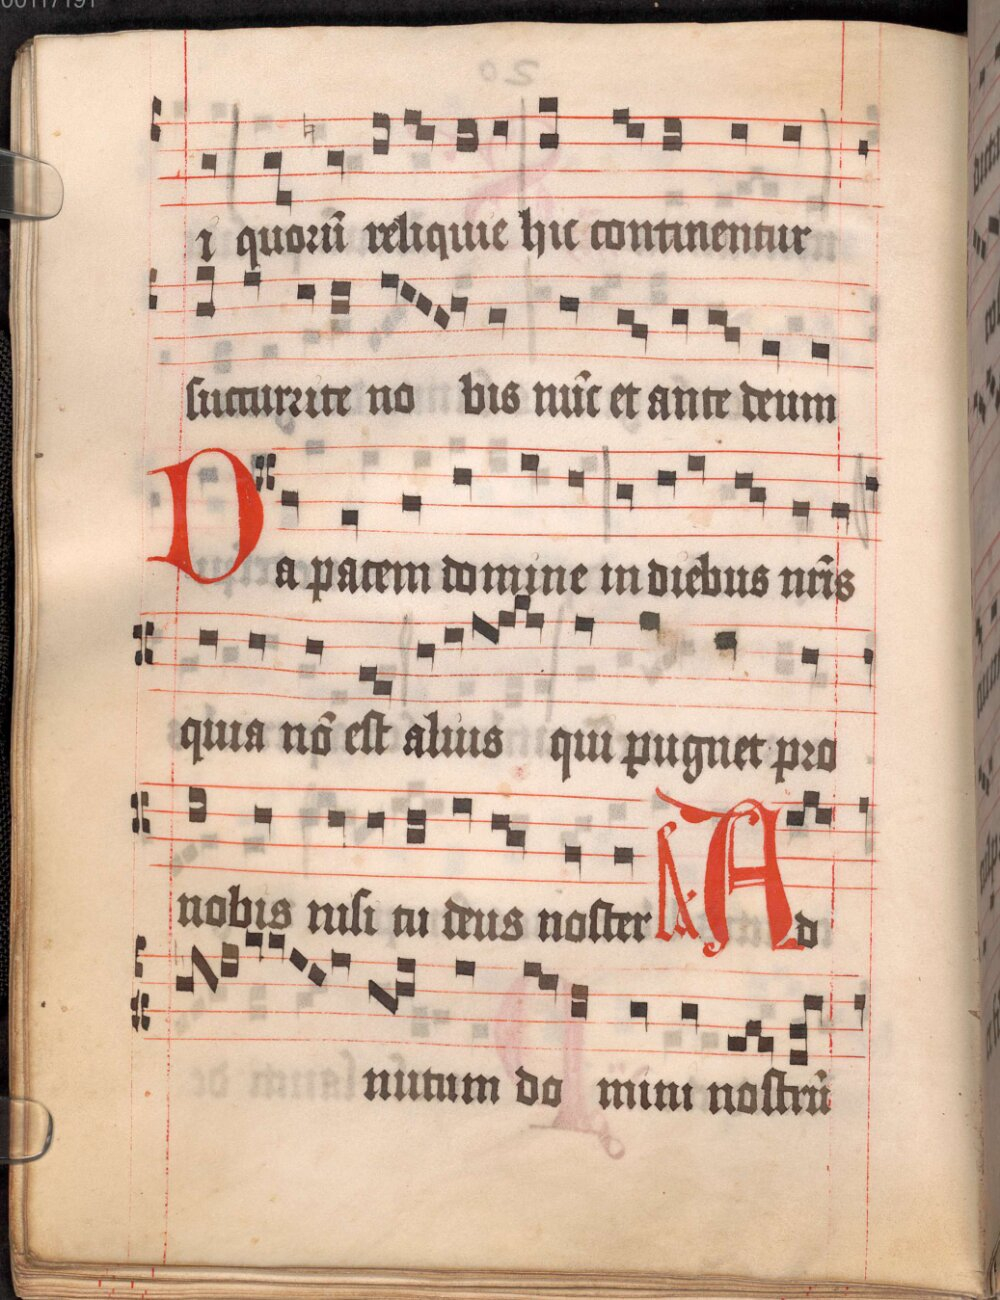 i quorū reliquie hic continentur
succurrite no bis nūc et ante deum
Da pacem domine in diebus nr̄is
quia nō est alius qui pugnet pro
nobis nisi tu deus noster Ad
nutum do mini nostrū